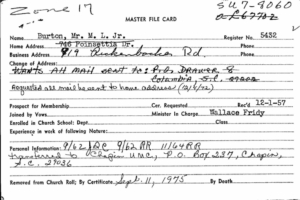 Zone 17
SU7-8060
MASTER FILE CARD
Name Burton, Mr. M. L. Jr. Register No. 5432
Home Address 746 Poinsettia Dr.
Business Address 819 Quickenbacker Rd.
Change of Address:
WANTS All MAIL sent to P.O. DRAWER 8
Columbia, S.C.
Requested all mail be sent to home address (12/6/72)
Prospect for Membership Cor. Requested Rec'd 12-1-57
Joined by Vows Minister In Charge Wallace Fridy
Enrolled in Church School: Dept. Class
Experience in work of following Nature:
Personal Information: 9/62 9/62 RR 11/64 RR
transferred to Chapin UMC, P.O. Box 237, Chapin,
S.C. 29036
Removed from Church Roll; By Certificate Sept. 11, 1975 By Death